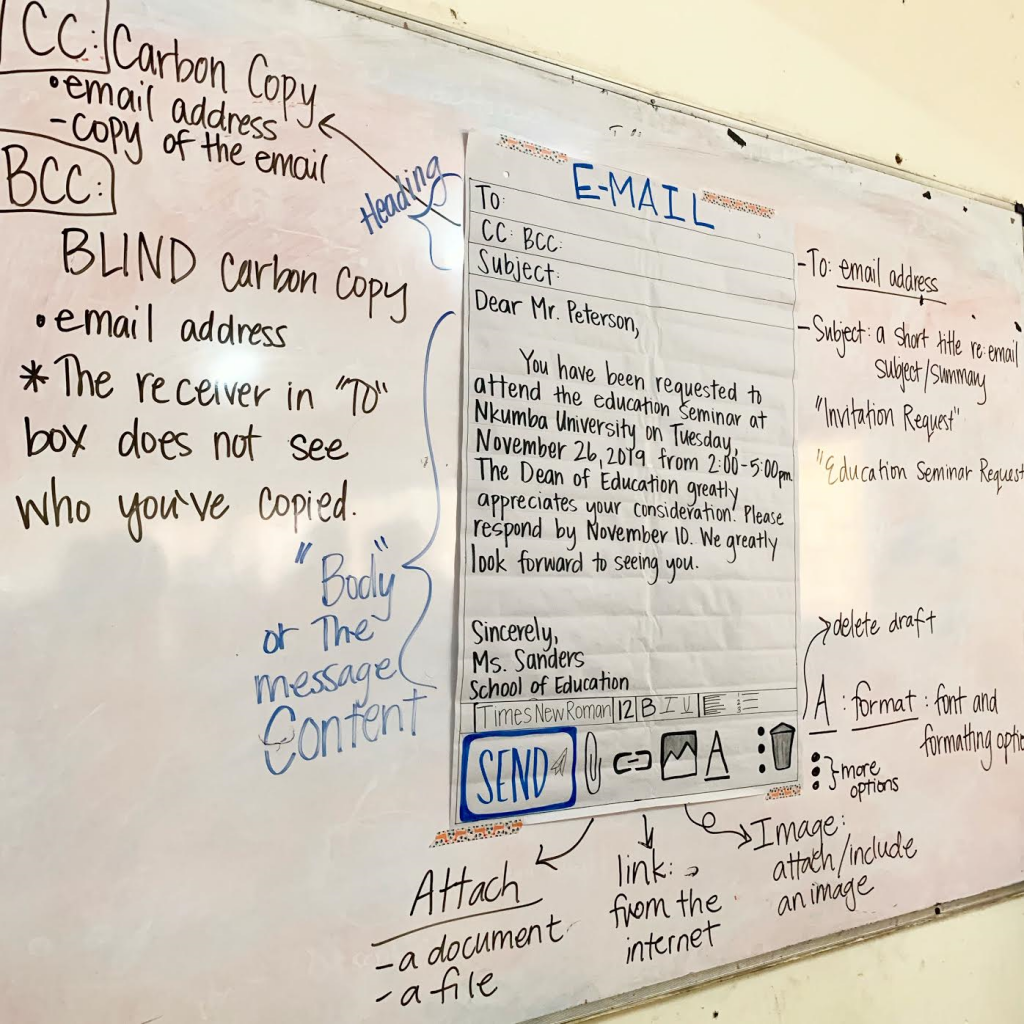 CC: Carbon Copy
• email address
- copy of the email
BCC:
BLIND Carbon Copy
• email address
* The receiver in "TO"
box does not see
who you've copied.
Heading
"Body"
or The
message
Content
E-MAIL
To:
CC: BCC:
Subject:
Dear Mr. Peterson,
You have been requested to
attend the education seminar at
Nkumba University on Tuesday,
November 26, 2019 from 2:00-5:00pm
The Dean of Education greatly
appreciates your consideration. Please
respond by November 10. We greatly
look forward to seeing you.
Sincerely,
Ms. Sanders
School of Education
Times New Roman 12 B I U
SEND A
- To: email address
- Subject: a short title re: email
subject/summary
"Invitation Request"
"Education Seminar Request
delete draft
A : format : font and
formatting optio
more
options
Attach
- a document
- a file
link:
from the
internet
Image:
attach/include
an image